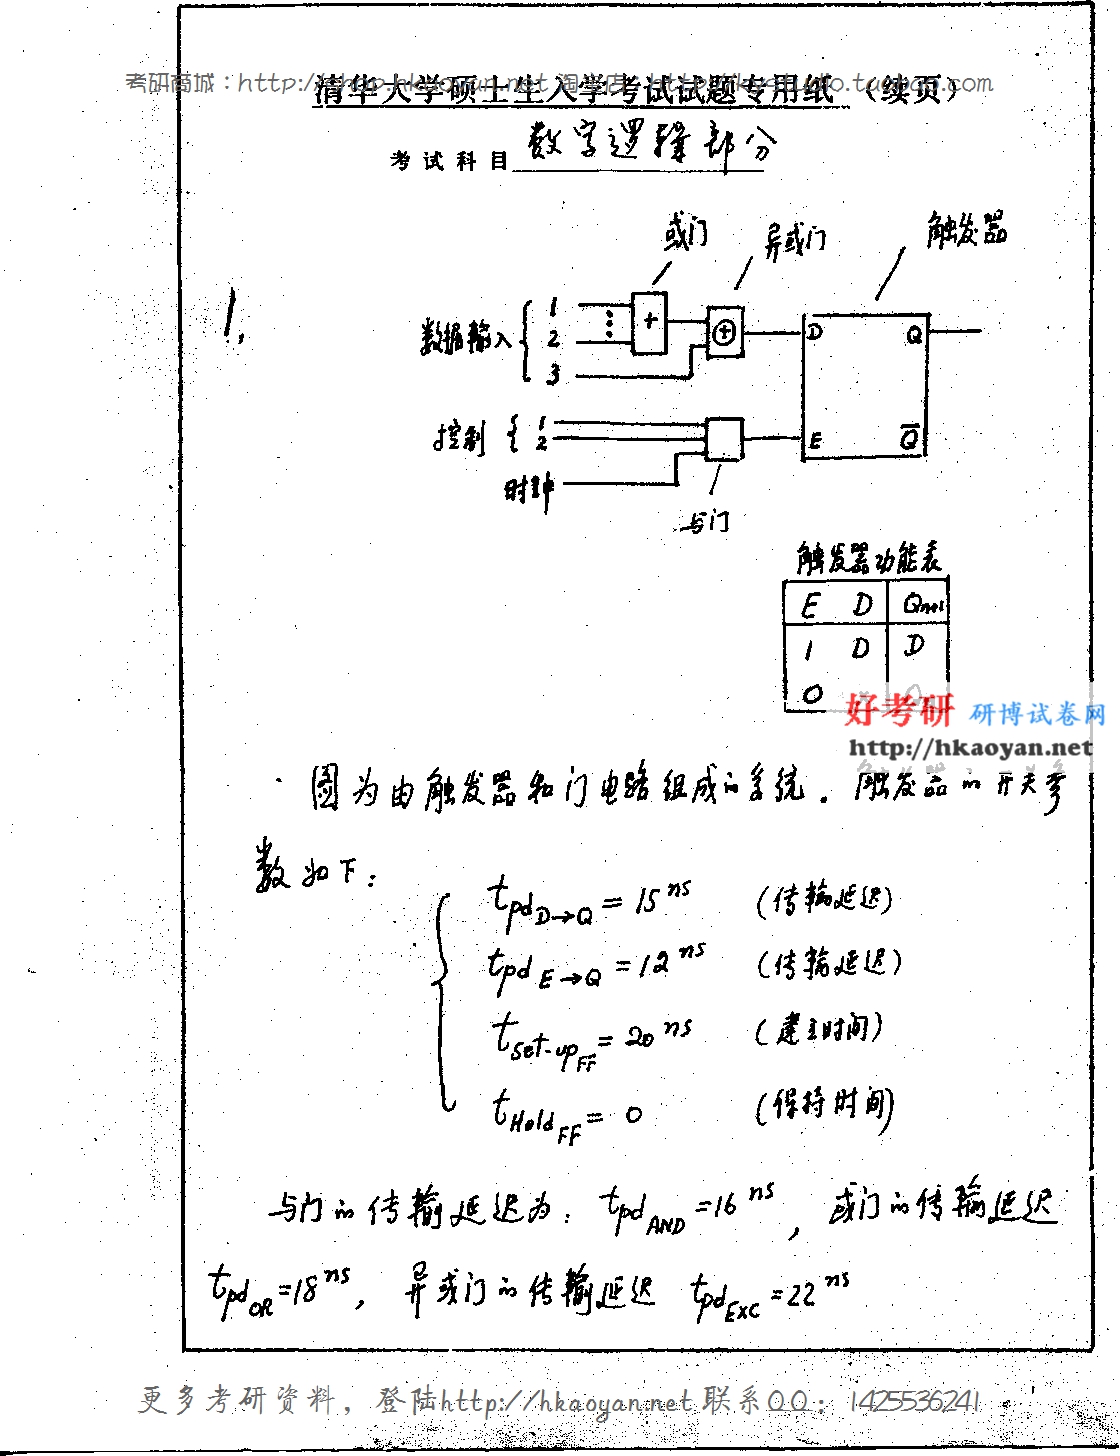 考研商城：http://shop.hkaoyan.net 淘
清华大学硕士生入学考试试题专用纸 （续页）
考试科目 数字逻辑部分
或门 异或门 触发器
1.
数据输入 { 1 2 3
+
⊕
D Q
E Q̅
控制 { 1 2
时钟
与门
触发器功能表
E D Qn+1
1 D D
0
好考研 研博试卷网
http://hkaoyan.net
图为由触发器和门电路组成的系统。触发器的开关参
数如下：
tpd D→Q = 15 ns （传输延迟）
tpd E→Q = 12 ns （传输延迟）
tSet-up FF = 20 ns （建立时间）
tHold FF = 0 （保持时间）
与门的传输延迟为：tpd AND = 16 ns，或门的传输延迟
tpd OR = 18 ns，异或门的传输延迟 tpd EXC = 22 ns
更多考研资料，登陆http://hkaoyan.net 联系QQ：1425536241